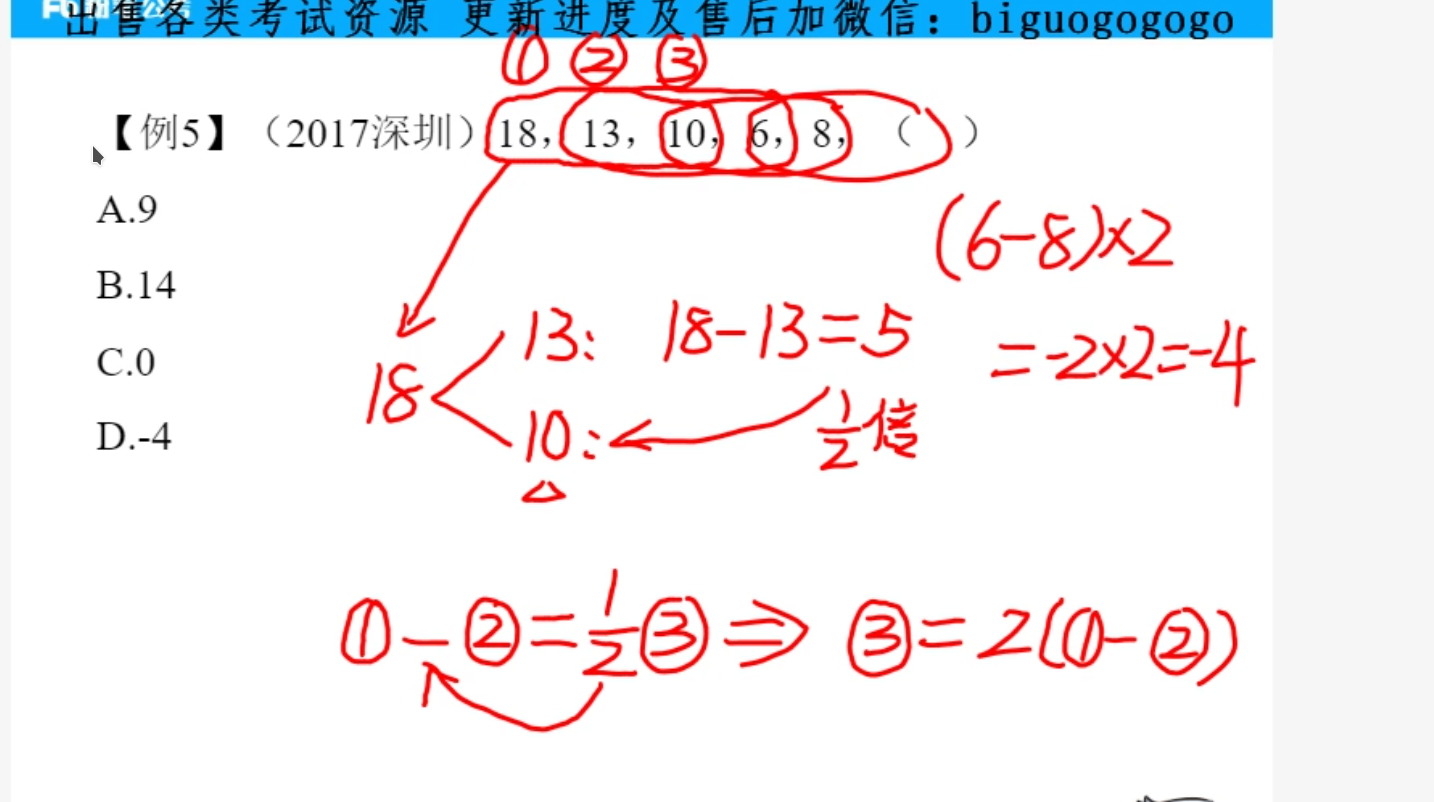 出售各类考试资源 更新进度及售后加微信：biguogogogo
① ② ③
【例5】（2017深圳）18，13，10，6，8，（ ）
A.9
B.14
C.0
D.-4
(6-8)×2
=-2×2=-4
18
13: 18-13=5
10: 1/2倍
①-②=1/2③⇒ ③=2(①-②)